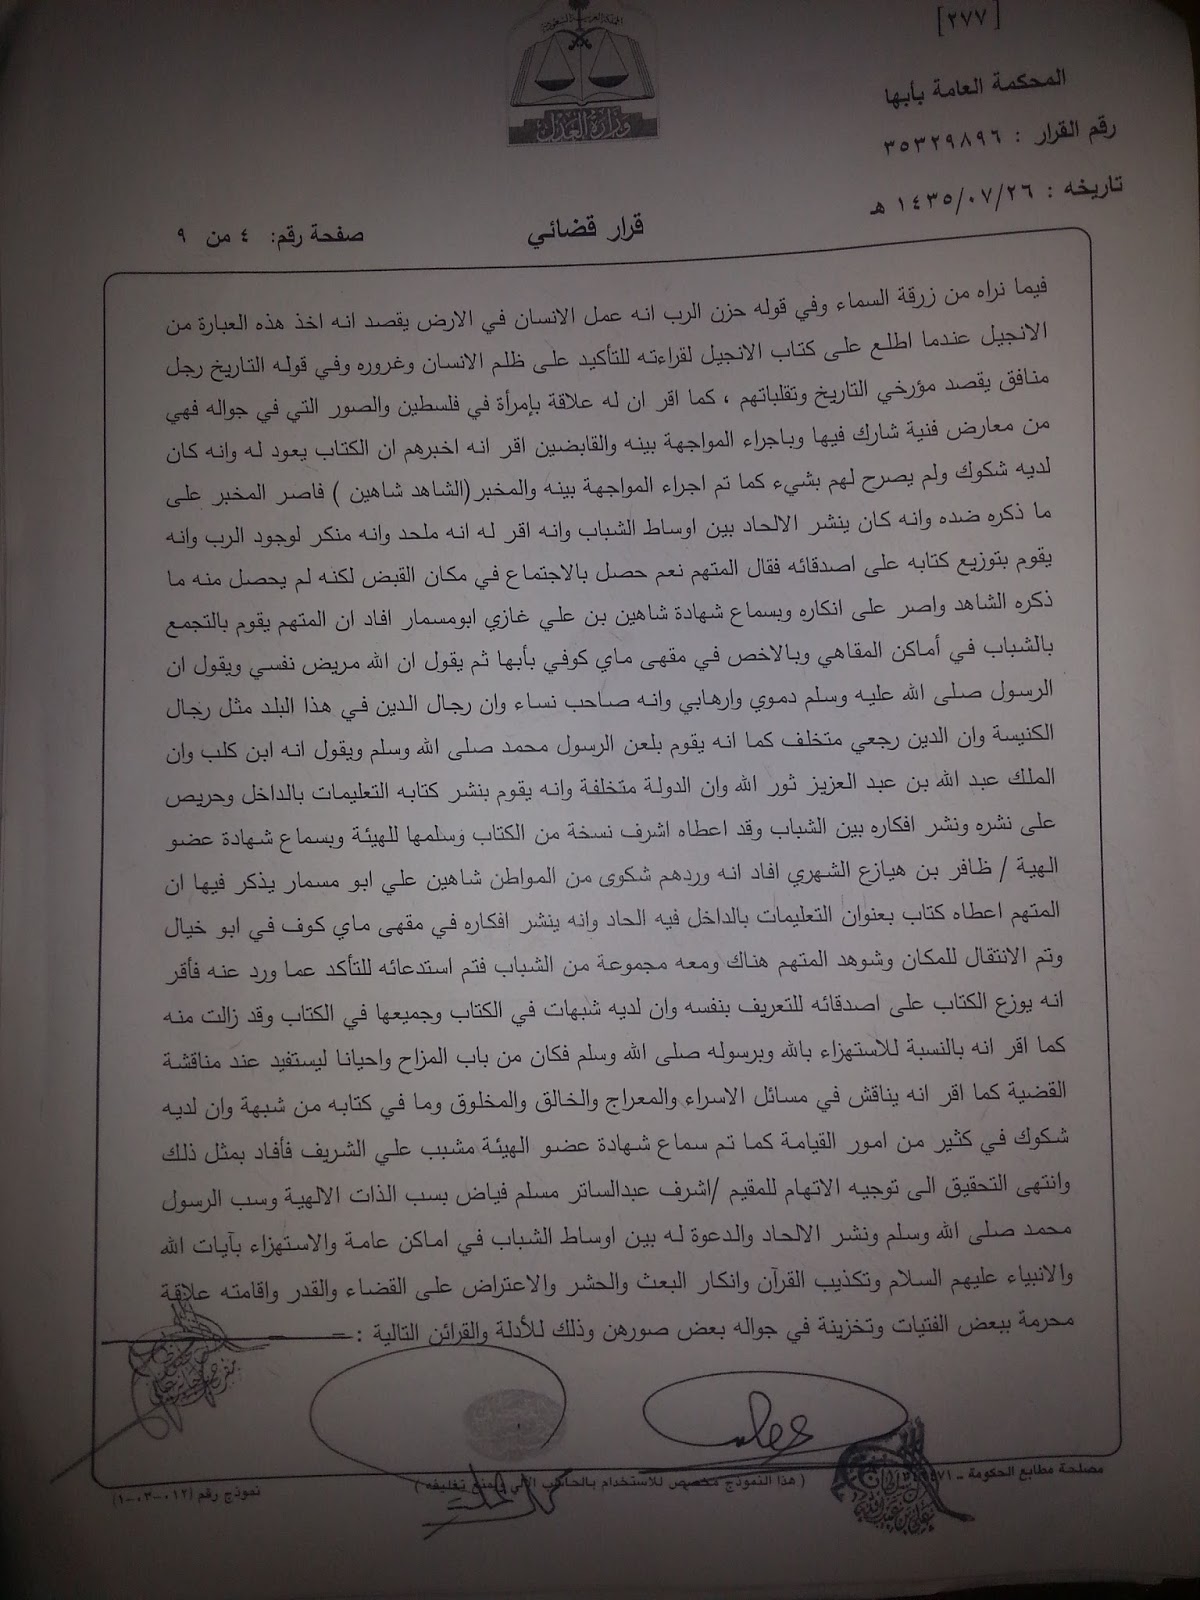 [٢٧٧]
المملكة العربية السعودية
وزارة العدل
المحكمة العامة بأبها
رقم القرار : ٣٥٣٢٩٨٩٦
تاريخه : ١٤٣٥/٠٧/٢٦ هـ
قرار قضائي
صفحة رقم: ٤ من ٩
فيما نراه من زرقة السماء وفي قوله حزن الرب انه عمل الانسان في الارض يقصد انه اخذ هذه العبارة من
الانجيل عندما اطلع على كتاب الانجيل لقراءته للتأكيد على ظلم الانسان وغروره وفي قوله التاريخ رجل
منافق يقصد مؤرخي التاريخ وتقلباتهم ، كما اقر ان له علاقة بإمرأة في فلسطين والصور التي في جواله فهي
من معارض فنية شارك فيها وباجراء المواجهة بينه والقابضين اقر انه اخبرهم ان الكتاب يعود له وانه كان
لديه شكوك ولم يصرح لهم بشيء كما تم اجراء المواجهة بينه والمخبر(الشاهد شاهين ) فاصر المخبر على
ما ذكره ضده وانه كان ينشر الالحاد بين اوساط الشباب وانه اقر له انه ملحد وانه منكر لوجود الرب وانه
يقوم بتوزيع كتابه على اصدقائه فقال المتهم نعم حصل بالاجتماع في مكان القبض لكنه لم يحصل منه ما
ذكره الشاهد واصر على انكاره وبسماع شهادة شاهين بن علي غازي ابومسمار افاد ان المتهم يقوم بالتجمع
بالشباب في أماكن المقاهي وبالاخص في مقهى ماي كوفي بأبها ثم يقول ان الله مريض نفسي ويقول ان
الرسول صلى الله عليه وسلم دموي وارهابي وانه صاحب نساء وان رجال الدين في هذا البلد مثل رجال
الكنيسة وان الدين رجعي متخلف كما انه يقوم بلعن الرسول محمد صلى الله وسلم ويقول انه ابن كلب وان
الملك عبد الله بن عبد العزيز ثور الله وان الدولة متخلفة وانه يقوم بنشر كتابه التعليمات بالداخل وحريص
على نشره ونشر افكاره بين الشباب وقد اعطاه اشرف نسخة من الكتاب وسلمها للهيئة وبسماع شهادة عضو
الهية / ظافر بن هيازع الشهري افاد انه وردهم شكوى من المواطن شاهين علي ابو مسمار يذكر فيها ان
المتهم اعطاه كتاب بعنوان التعليمات بالداخل فيه الحاد وانه ينشر افكاره في مقهى ماي كوف في ابو خيال
وتم الانتقال للمكان وشوهد المتهم هناك ومعه مجموعة من الشباب فتم استدعائه للتأكد عما ورد عنه فأقر
انه يوزع الكتاب على اصدقائه للتعريف بنفسه وان لديه شبهات في الكتاب وجميعها في الكتاب وقد زالت منه
كما اقر انه بالنسبة للاستهزاء بالله وبرسوله صلى الله وسلم فكان من باب المزاح واحيانا ليستفيد عند مناقشة
القضية كما اقر انه يناقش في مسائل الاسراء والمعراج والخالق والمخلوق وما في كتابه من شبهة وان لديه
شكوك في كثير من امور القيامة كما تم سماع شهادة عضو الهيئة مشبب علي الشريف فأفاد بمثل ذلك
وانتهى التحقيق الى توجيه الاتهام للمقيم /اشرف عبدالساتر مسلم فياض بسب الذات الالهية وسب الرسول
محمد صلى الله وسلم ونشر الالحاد والدعوة له بين اوساط الشباب في اماكن عامة والاستهزاء بآيات الله
والانبياء عليهم السلام وتكذيب القرآن وانكار البعث والحشر والاعتراض على القضاء والقدر واقامته علاقة
محرمة ببعض الفتيات وتخزينة في جواله بعض صورهن وذلك للأدلة والقرائن التالية :
مصلحة مطابع الحكومة -
( هذا النموذج مخصص للاستخدام بالحاسب الآلي ويمنع تغليفه )
نموذج رقم (١٢-٠٣-٠١)